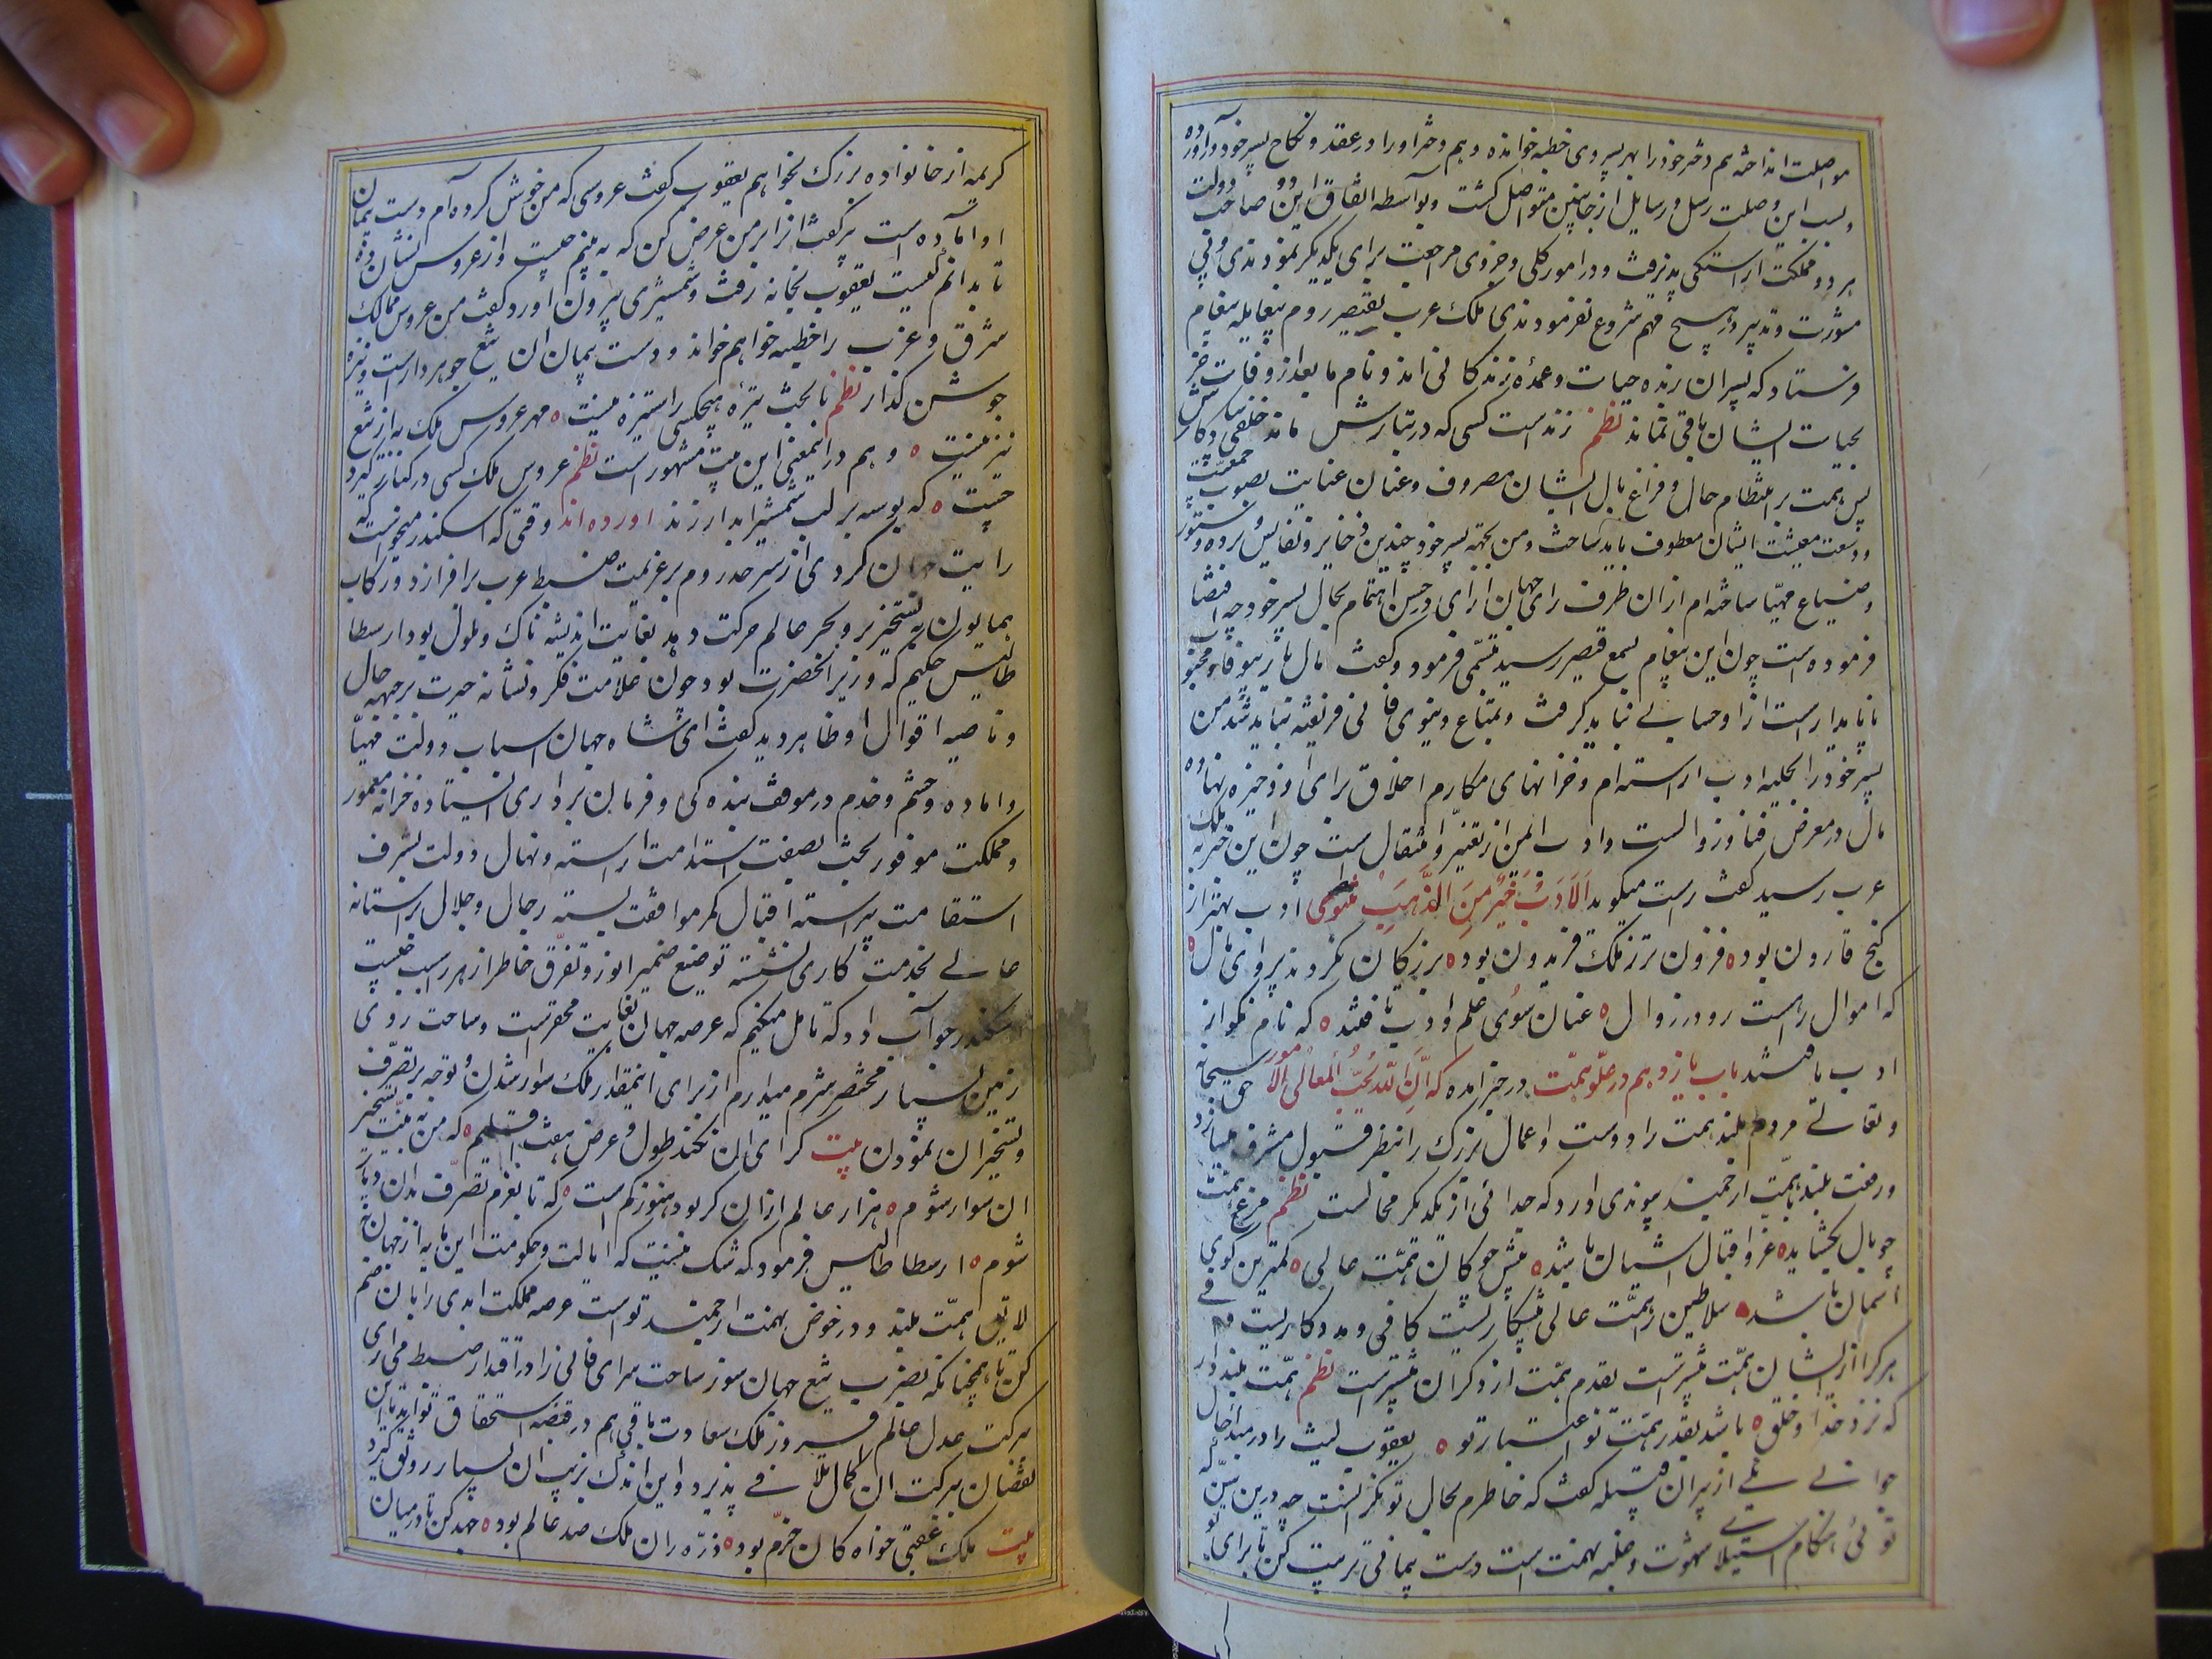 مواصلت انداخته هم دختر خود را بهر پسر وی خطبه خوانده و هم دختر او را در عقد و نکاح پسر خود درآورده
و بسبب این وصلت رسل و رسایل از جانبین متواصل کشت و بواسطه اتفاق این دو صاحب دولت
هر دو مملکت اراستکی پذیرفت و در امور کلی و جزوی مراجعت برای یکدیکر نمودندی و بی
مشورت و تدبیر در هیچ مهم شروع نفرمودندی ملک عرب بقیصر روم پیغام
فرستاد که پسران زبده حیات و عمده زندکانی اند و نام ما بعد از وفات جز
بحیات ایشان باقی نماند نظم زنده است کسی که در تبارش ماند خلفی بیادکارش
پس همت بر انتظام حال و فراغ بال ایشان مصروف و عنان عنایت بصوب جمعیت
و وسعت معیشت ایشان معطوف باید ساخت و من بجهة پسر خود چندین ذخایر و نفایس
و ضیاع مهیا ساخته ام از ان طرف رای جهان ارای در حسن اهتمام بحال پسر خود چه اقتضا
فرموده است چون این پیغام بسمع قیصر رسید تبسمی فرمود و کفت مال یار بیوفا و محبوب
ناپایدار است از او حسابی نباید کرفت و بمتاع دنیوی فانی فریفته نباید شد من
پسر خود را بحلیه ادب اراسته ام و خزانهای مکارم اخلاق برای او ذخیره نهاده
مال در معرض فنا و زوالست و ادب ایمن از تغیر و انتقال است چون این خبر به ملک
عرب رسید کفت راست میکوید اَلاَدَبُ خَیرٌ مِنَ الذَّهَبِ مثنوی ادب بهتر از
کنج قارون بود ه فزون تر ز ملک فریدون بود ه بزرکان نکردند پروای مال ه
که اموال راهست رو در زوال ه عنان سوی علم و ادب تافتند ه که نام نکو از
ادب یافتند باب یازدهم در علو همت در خبر امده که اِنَّ اللهَ یُحِبُّ المَعالی الامور حق سبحانه
و تعالی مردم بلند همت را دوست و اعمال بزرک را بنظر قبول مشرف میسازد
و رفعت بلند با همت ارجمند پیوندی اورد که جدائی از یکدیکر محالست نظم مرغ همت
چو بال بکشاید ه عز و اقبال اشیان باشد ه پیش چوکان همت عالی ه کمترین کوی
آسمان باشد ه سلاطین را همت عالی پیشکاریست کافی و مددکاریست
هر کرا از ایشان همت بیشتر است بقدم همت از دکران پیشتر است نظم همت بلند دار
که نزد خدا و خلق ه باشد بقدر همت تو اعتبار تو ه یعقوب لیث را در مبدا حال
جوانی یکی از پیران قبیله کفت که خاطرم بحال تو نکرانست چه درین سن که
توئی هنکام استیلای شهوت و غلبه نهمت است دست پیمانی ترتیب کن تا برای تو
کریمه از خانواده بزرک بخواهم یعقوب کفت عروسی که من خوش کرده ام دست پیمان
او آماده است پیر کفت انرا بر من عرض کن که به بینم چیست و از عروس نشان ده
تا بدانم کیست یعقوب بخانه رفت و شمشیری بیرون اورد و کفت من عروس ممالک
شرق و غرب را خطبه خواهم خواند و دست پیمان ان تیغ جوهر دار است و نیزه
جوشن کذار نظم با بخت تیره هیچکس را ستیزه نیست ه مهر عروس ملک به از تیغ
تیز نیست ه و هم در انمعنی این بیت مشهور است نظم عروس ملک کسی در کنار کیرد
چست ه که بوسه بر لب شمشیر ابدار زند اورده اند وقتی که اسکندر میخواست که
رایت جهان کردی از سرحد روم بر عزیمت ضبط عرب برافرازد و رکاب
همایون به تسخیر بر و بحر عالم حرکت دهد بغایت اندیشه ناک و ملول بود ارسطا
طالیس حکیم که وزیر انحضرت بود چون علامت فکر و نشانه حیرت بر جبهه حال
و ناصیه اقوال او ظاهر دید کفت ای شاه جهان اسباب دولت مهیا
و اماده و حشم و خدم در موقف بنده کی و فرمان برداری ایستاده خزانه معمور
و مملکت موفور بخت بصفت استدامت اراسته و نهال دولت بشرف
استقامت پیراسته اقبال کمر موافقت بسته رجال و جلال بر استانه
عالی بخدمت کاری نشسته توضیع ضمیر انور و تفرق خاطر از هر سبب چیست
سکندر جواب داد که تامل میکنم که عرصه جهان بغایت محقر است و ساحت روی
زمین بسیار مختصر شرم میدارم از برای اینمقدار ملک سوار شدن و توجه بر تصرف
و تسخیر ان نمودن بیت کرای ان نکند طول و عرض هفت اقلیم ه که من به نیت تسخیر
ان سوار شوم ه هزار عالم ازان کر بود هنوز کم است ه که تا بعزم تصرف بدان دیار
شوم ه ارسطاطالیس فرمود که شک نیست که ایالت و حکومت این مایه از جهان
لایق همت بلند و درخور نهمت ارجمند تو است عرصه مملکت ابدی را با ان ضم
کن تا همچنانکه بضرب تیغ جهان سوز ساحت سرای فانی را در اقتدار ضبط می اری
ببرکت عدل عالم فیروز ملک سعادت باقی هم در قبضه استحقاق تو اید تا این
نقصان ببرکت ان کمال تلافی پذیرد و این اندک بزیب ان بسیار رونق کیرد
بیت ملک عقبی خواه کان خرم بود ه ذره زان ملک صد عالم بود ه جهد کن تا در میان